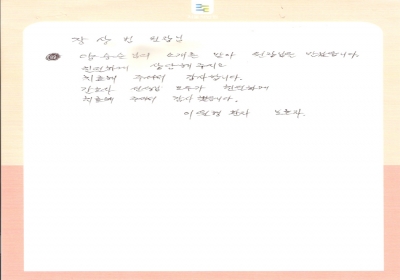 장 상 번 원장님
소개를 받아 원장님을 만났습니다.
친절하게 상담해 주시고
치료해 주셔서 감사합니다.
간호사 선생님 모두가 친절하게
치료해 주셔서 감사합니다.
이 환자 보호자.